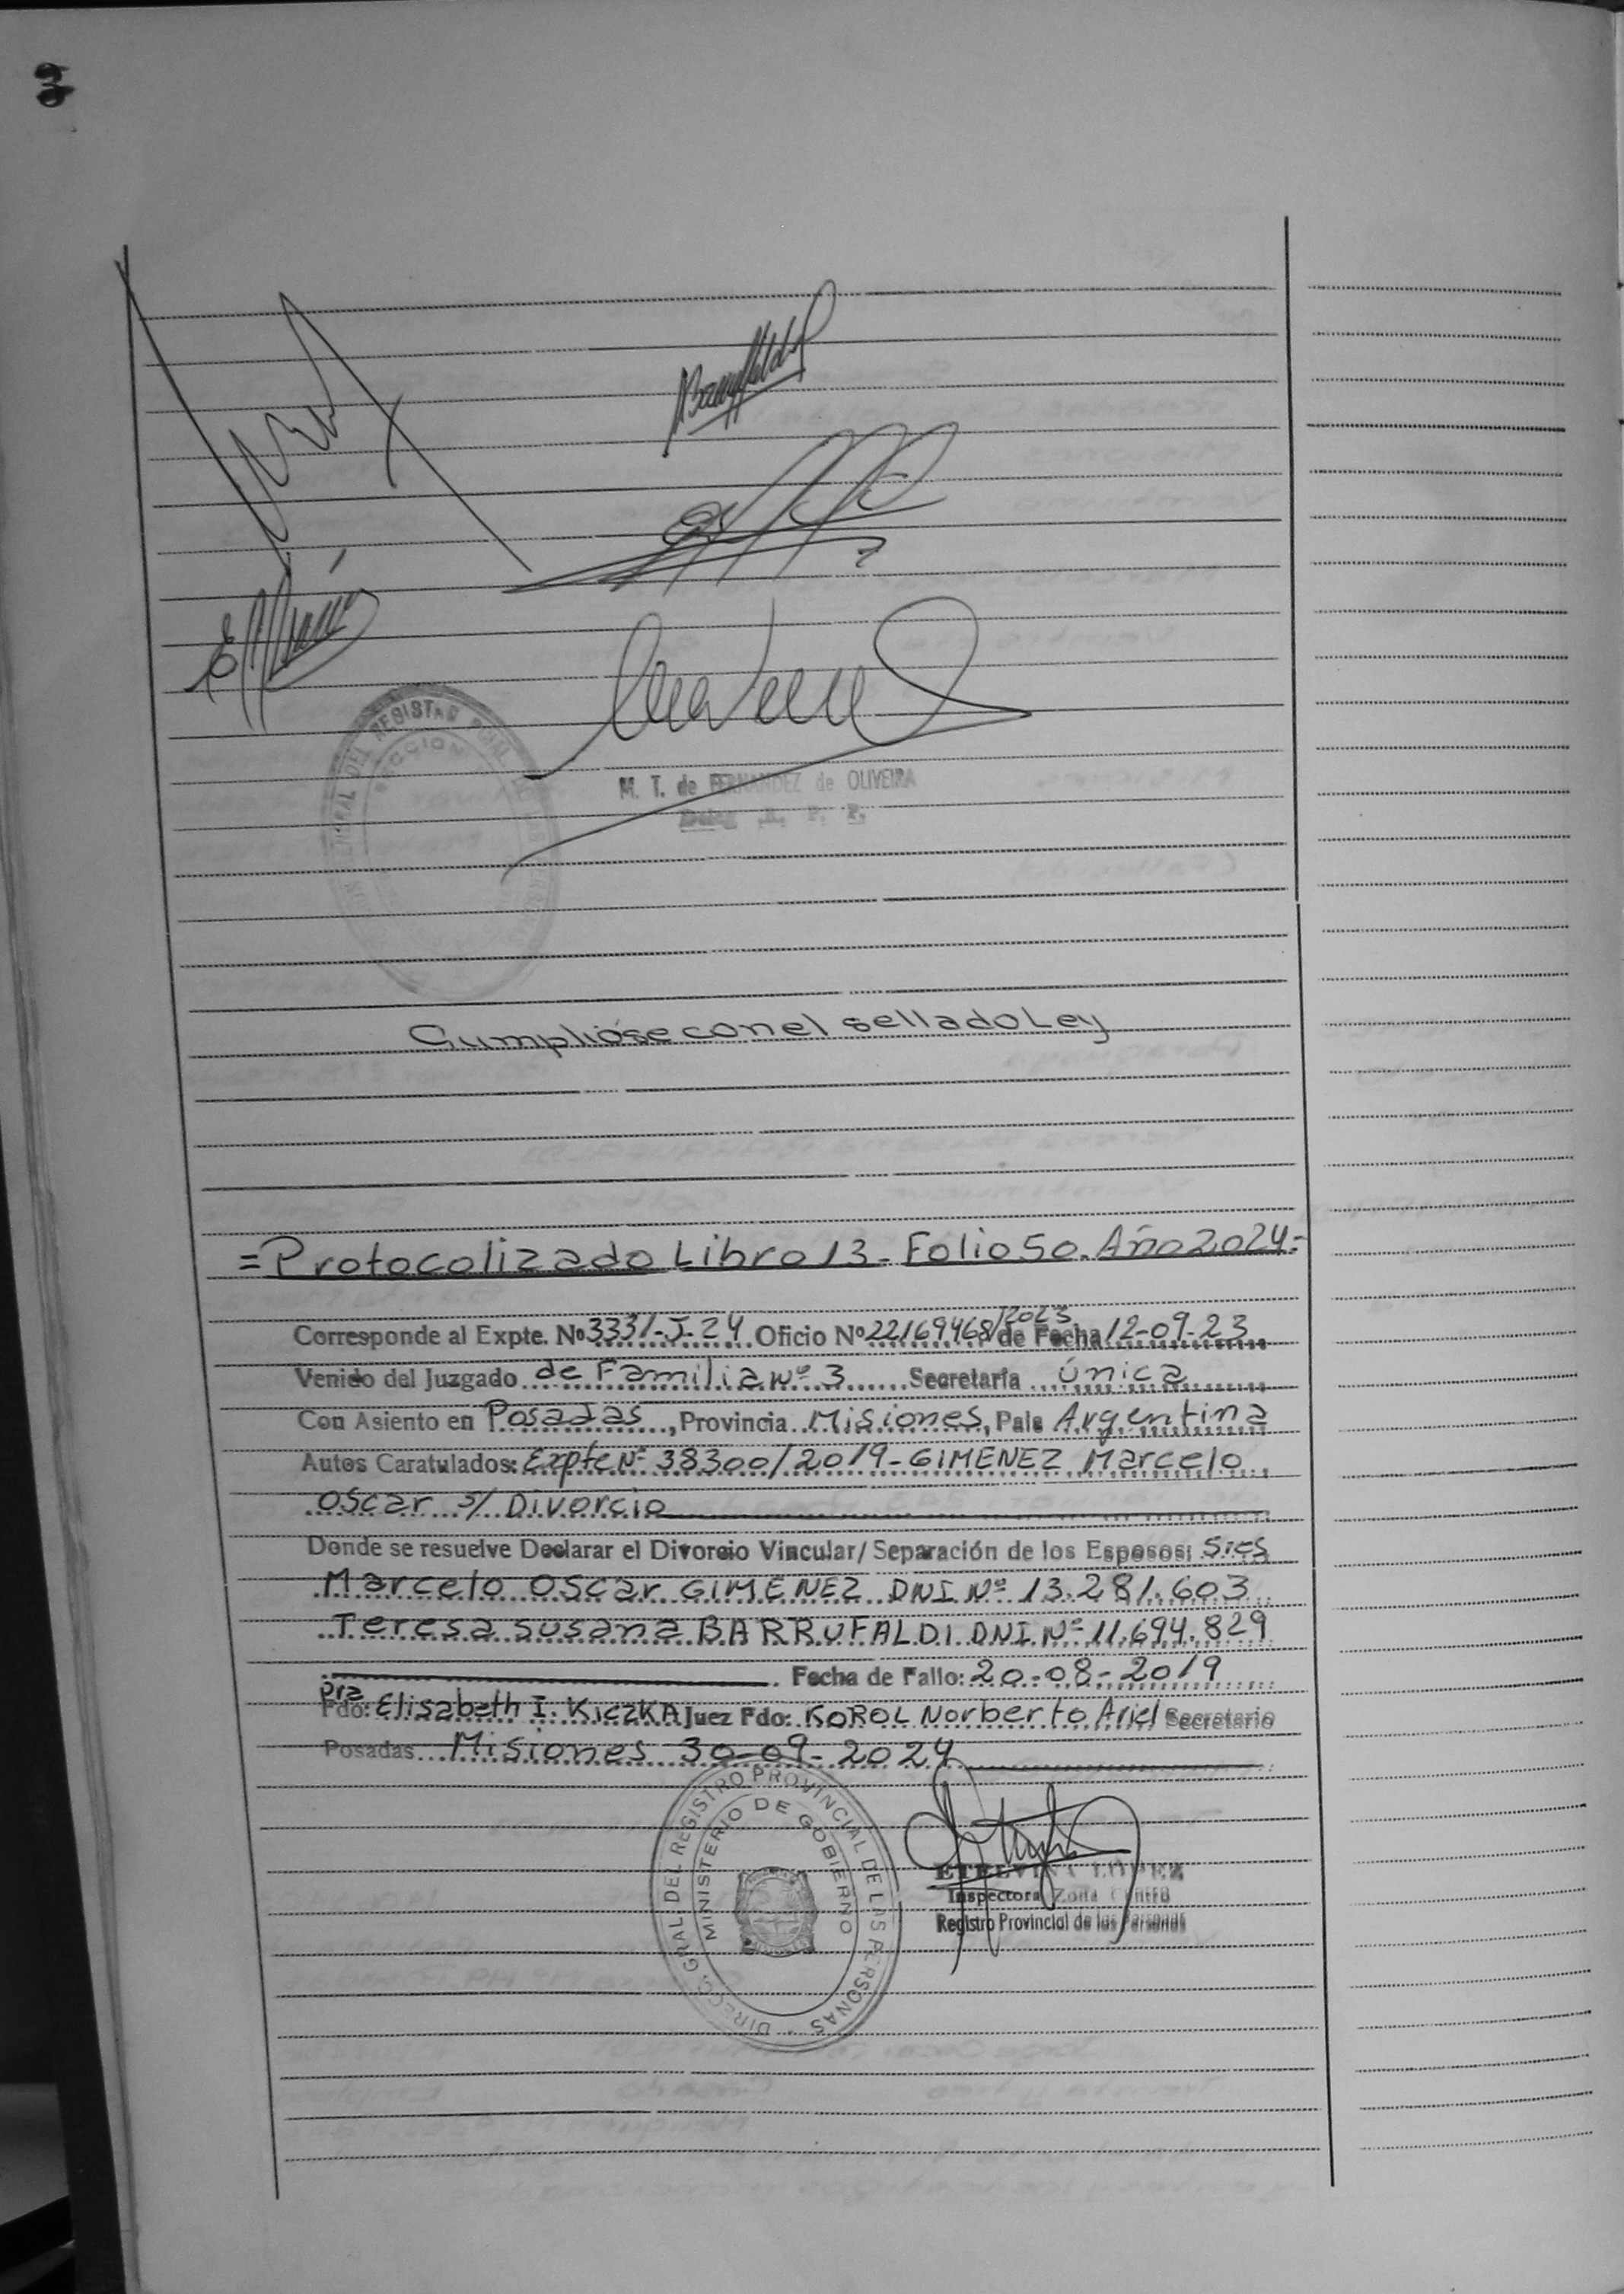 M. T. de FERNANDEZ de OLIVEIRA
Cumplióse con el sellado Ley
=Protocolizado Libro 13- Folio 50. Año 2024.-
Corresponde al Expte. Nº 3331-J-24 Oficio Nº 22169468/2023 de Fecha 12-09-23
Venido del Juzgado de Familia Nº 3 Secretaría única
Con Asiento en Posadas, Provincia Misiones, País Argentina
Autos Caratulados: Expte Nº 38300/2019-GIMENEZ Marcelo
Oscar s/ Divorcio
Donde se resuelve Declarar el Divorcio Vincular/ Separación de los Esposos: Sres
Marcelo Oscar GIMENEZ DNI Nº 13.281.603
Teresa Susana BARRUFALDI DNI Nº 11.694.829
Fecha de Fallo: 20-08-2019
Dra
Fdo: Elisabeth I. KICZKA Juez Fdo: KOROL Norberto Ariel Secretario
Posadas Misiones 30-09-2024
DIRECC. GRAL. DEL REGISTRO PROVINCIAL DE LAS PERSONAS
MINISTERIO DE GOBIERNO
ETELVINA LOPEZ
Inspectora Zona Centro
Registro Provincial de las Personas